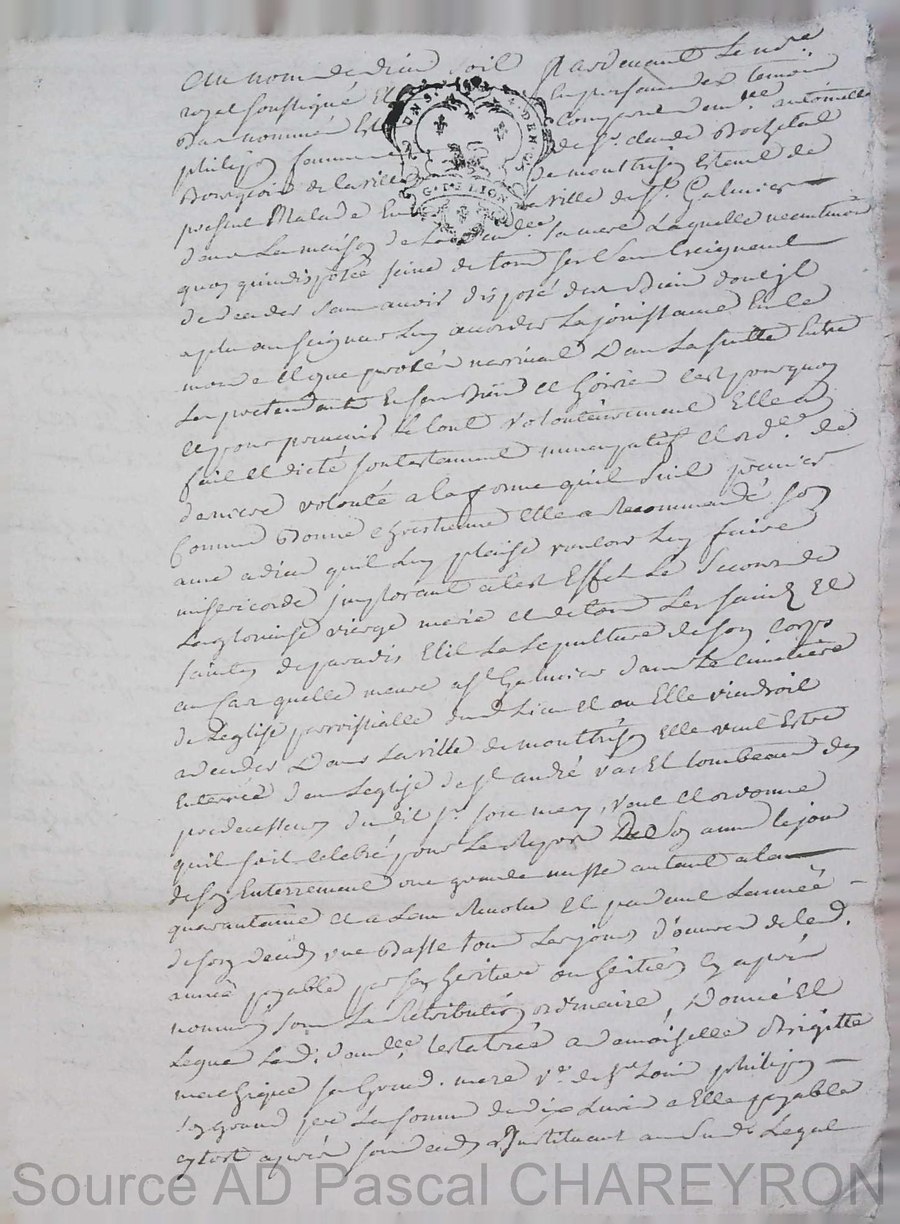 Au nom de dieu soit Pardevant Le no.re
royal soussigné Et En presance des temoins
Bas nommés Est Comparue dem.lle antoinette
philipon femme de S.r claude Bochetal
Bourgeois de la ville de montbrison Estant de
present Malade En la ville de S.t Galmier
dans La maison de La d.lle sa mere Laquelle neantmoins
quoy qu'indisposée seine de tous ses sens Creignent
de deceder sans avoir disposé des Bien dont jl
a plu au seigneur Luy accorder La jouissance En ce
monde Et que proces narrivent Dans La suitte Entre
Les pretendants En ses Biens Et hoirie C'est pourquoy
Et pour prevenir Le tout volontérement Elle a
fait Et dicté son testament nuncupatif Et ord.re de
derniere volonté a la forme qu'il suit premier
Comme Bonne chrestienne Elle a Recommandé son
ame a dieu qu'il Luy plaise vouloir Luy faire
misericorde jmplorant a cet Effet Le Secours de
La glorieuse vierge marie et de tous Les saints Et
saintes de paradis Elit La Sepulture de son corps
au Cas quelle meure a S.t Galmier dans Le cimetière
de L'eglise parroissialle dud. Lieu Et ou Elle viendroit
a deceder Dans La ville de montbrison Elle veut Estre
Enterrée dans L'eglise de S.t andré vas Et tombeau des
predecesseurs dudit S.r son mary, veut Et ordonne
qu'il soit celebré pour Le Repos De son ame le jour
de son Enterrement une grande messe autant a la
quarantaine Et a L'an Revolu Et pendant L'année
de son decedz une Basse tous Les jours d'ouvres de lad.
année payable par ses héritiers ou héritiers Cy après
nommés sous La Retribution ordinaire, Donne Et
Legue Lad. dam.lle testatrice a damoiselle Brigitte
mechique sa Grand. mere v.e de S.r Louis philipon
son Grand pere La somme de dix Livres a Elle payable
sytost après son decedz L'Instituant au Susd. Legat
UN S.
G. DE LION
Source AD Pascal CHAREYRON